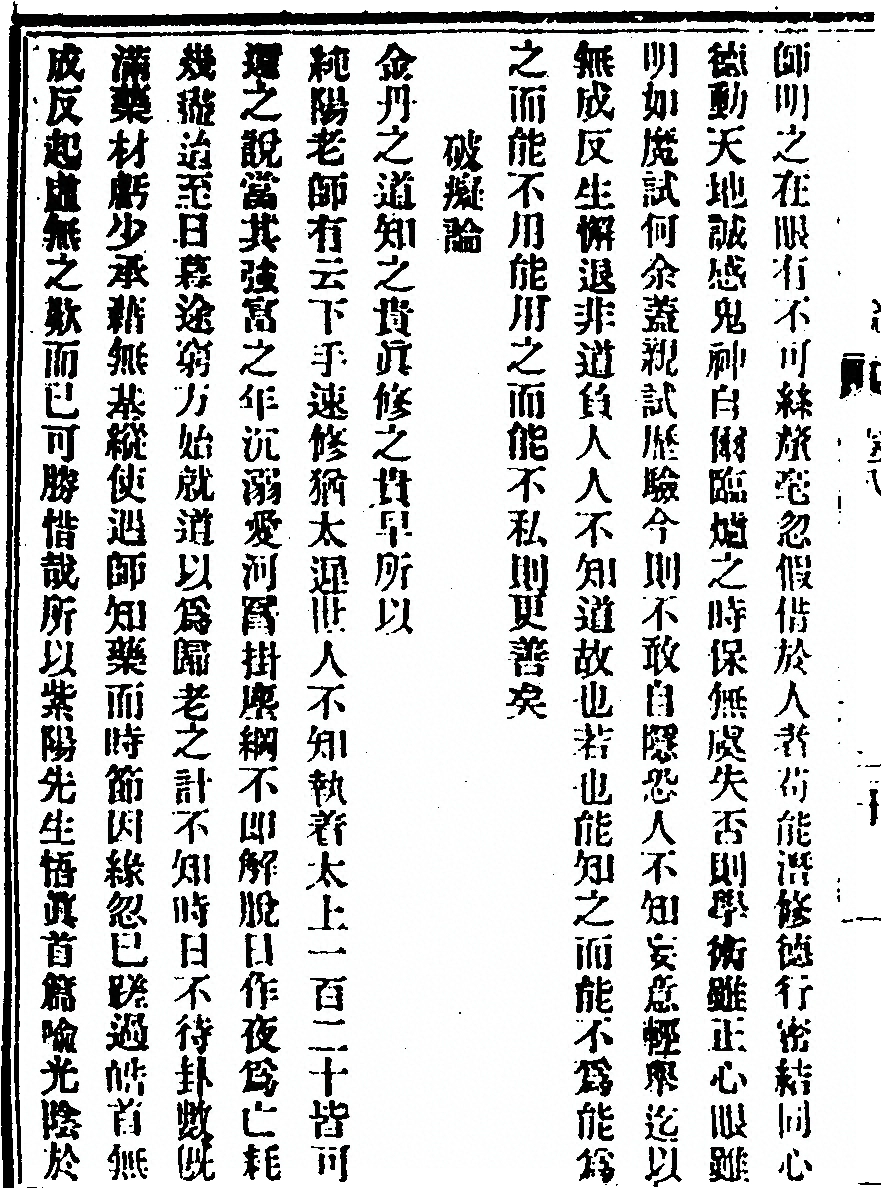 師明之在眼有不可絲毫忽假借於人者苟能潛修德行密結同心
德動天地誠感鬼神自爾臨爐之時保無虞失否則學術雖正心眼雖
明如魔試何余蓋親試歷驗今則不敢自隱恐人不知妄意輕舉迄以
無成反生懈退非道負人人不知道故也若也能知之而能不爲能爲
之而能不用能用之而能不私則更善矣
破癡論
金丹之道知之貴眞修之貴早所以
純陽老師有云下手速修猶太遲世人不知執着太上一百二十皆可
還之說當其強富之年沉溺愛河罥掛塵網不卽解脫日作夜爲亡耗
幾盡迨至日暮途窮方始就道以爲歸老之計不知時日不待卦數旣
滿藥材虧少承藉無基縱使遇師知藥而時節因緣忽已蹉過皓首無
成反起虛無之歎而已可勝惜哉所以紫陽先生悟眞首篇喻光陰於